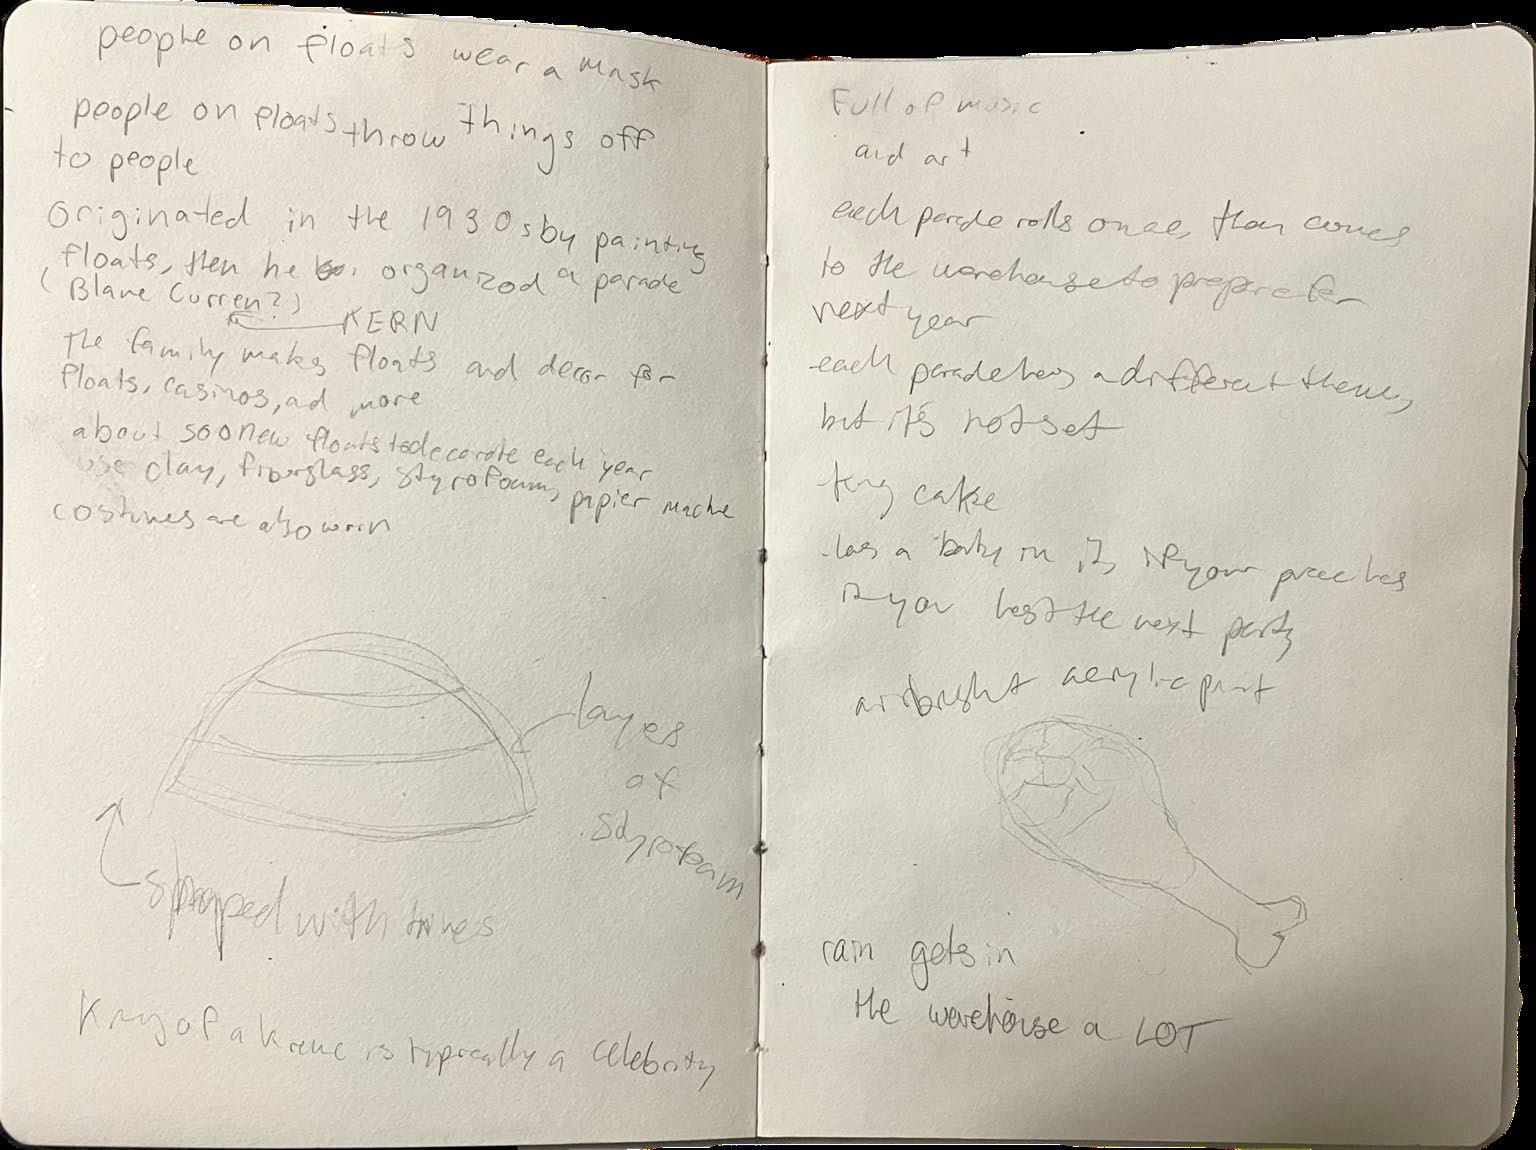 people on floats wear a mask
people on floats throw things off
to people
originated in the 1930s by painting
floats, then he organized a parade
(Blane Curren?)
KERN
the family makes floats and decor for
floats, casinos, ad more
about 500 new floats to decorate each year
use clay, fiberglass, styrofoam, papier mache
costumes are also worn
layes
of
styrofoam
shaped with
King of a krewe is typically a celebrity
Full of music
and art
each parade rolls once, then comes
to the warehouse to prepare for
next year
each parade has a different theme,
but it's not set
king cake
has a baby in it, if your piece has
it you host the next party
airbrush acrylic paint
rain gets in
the warehouse a LOT